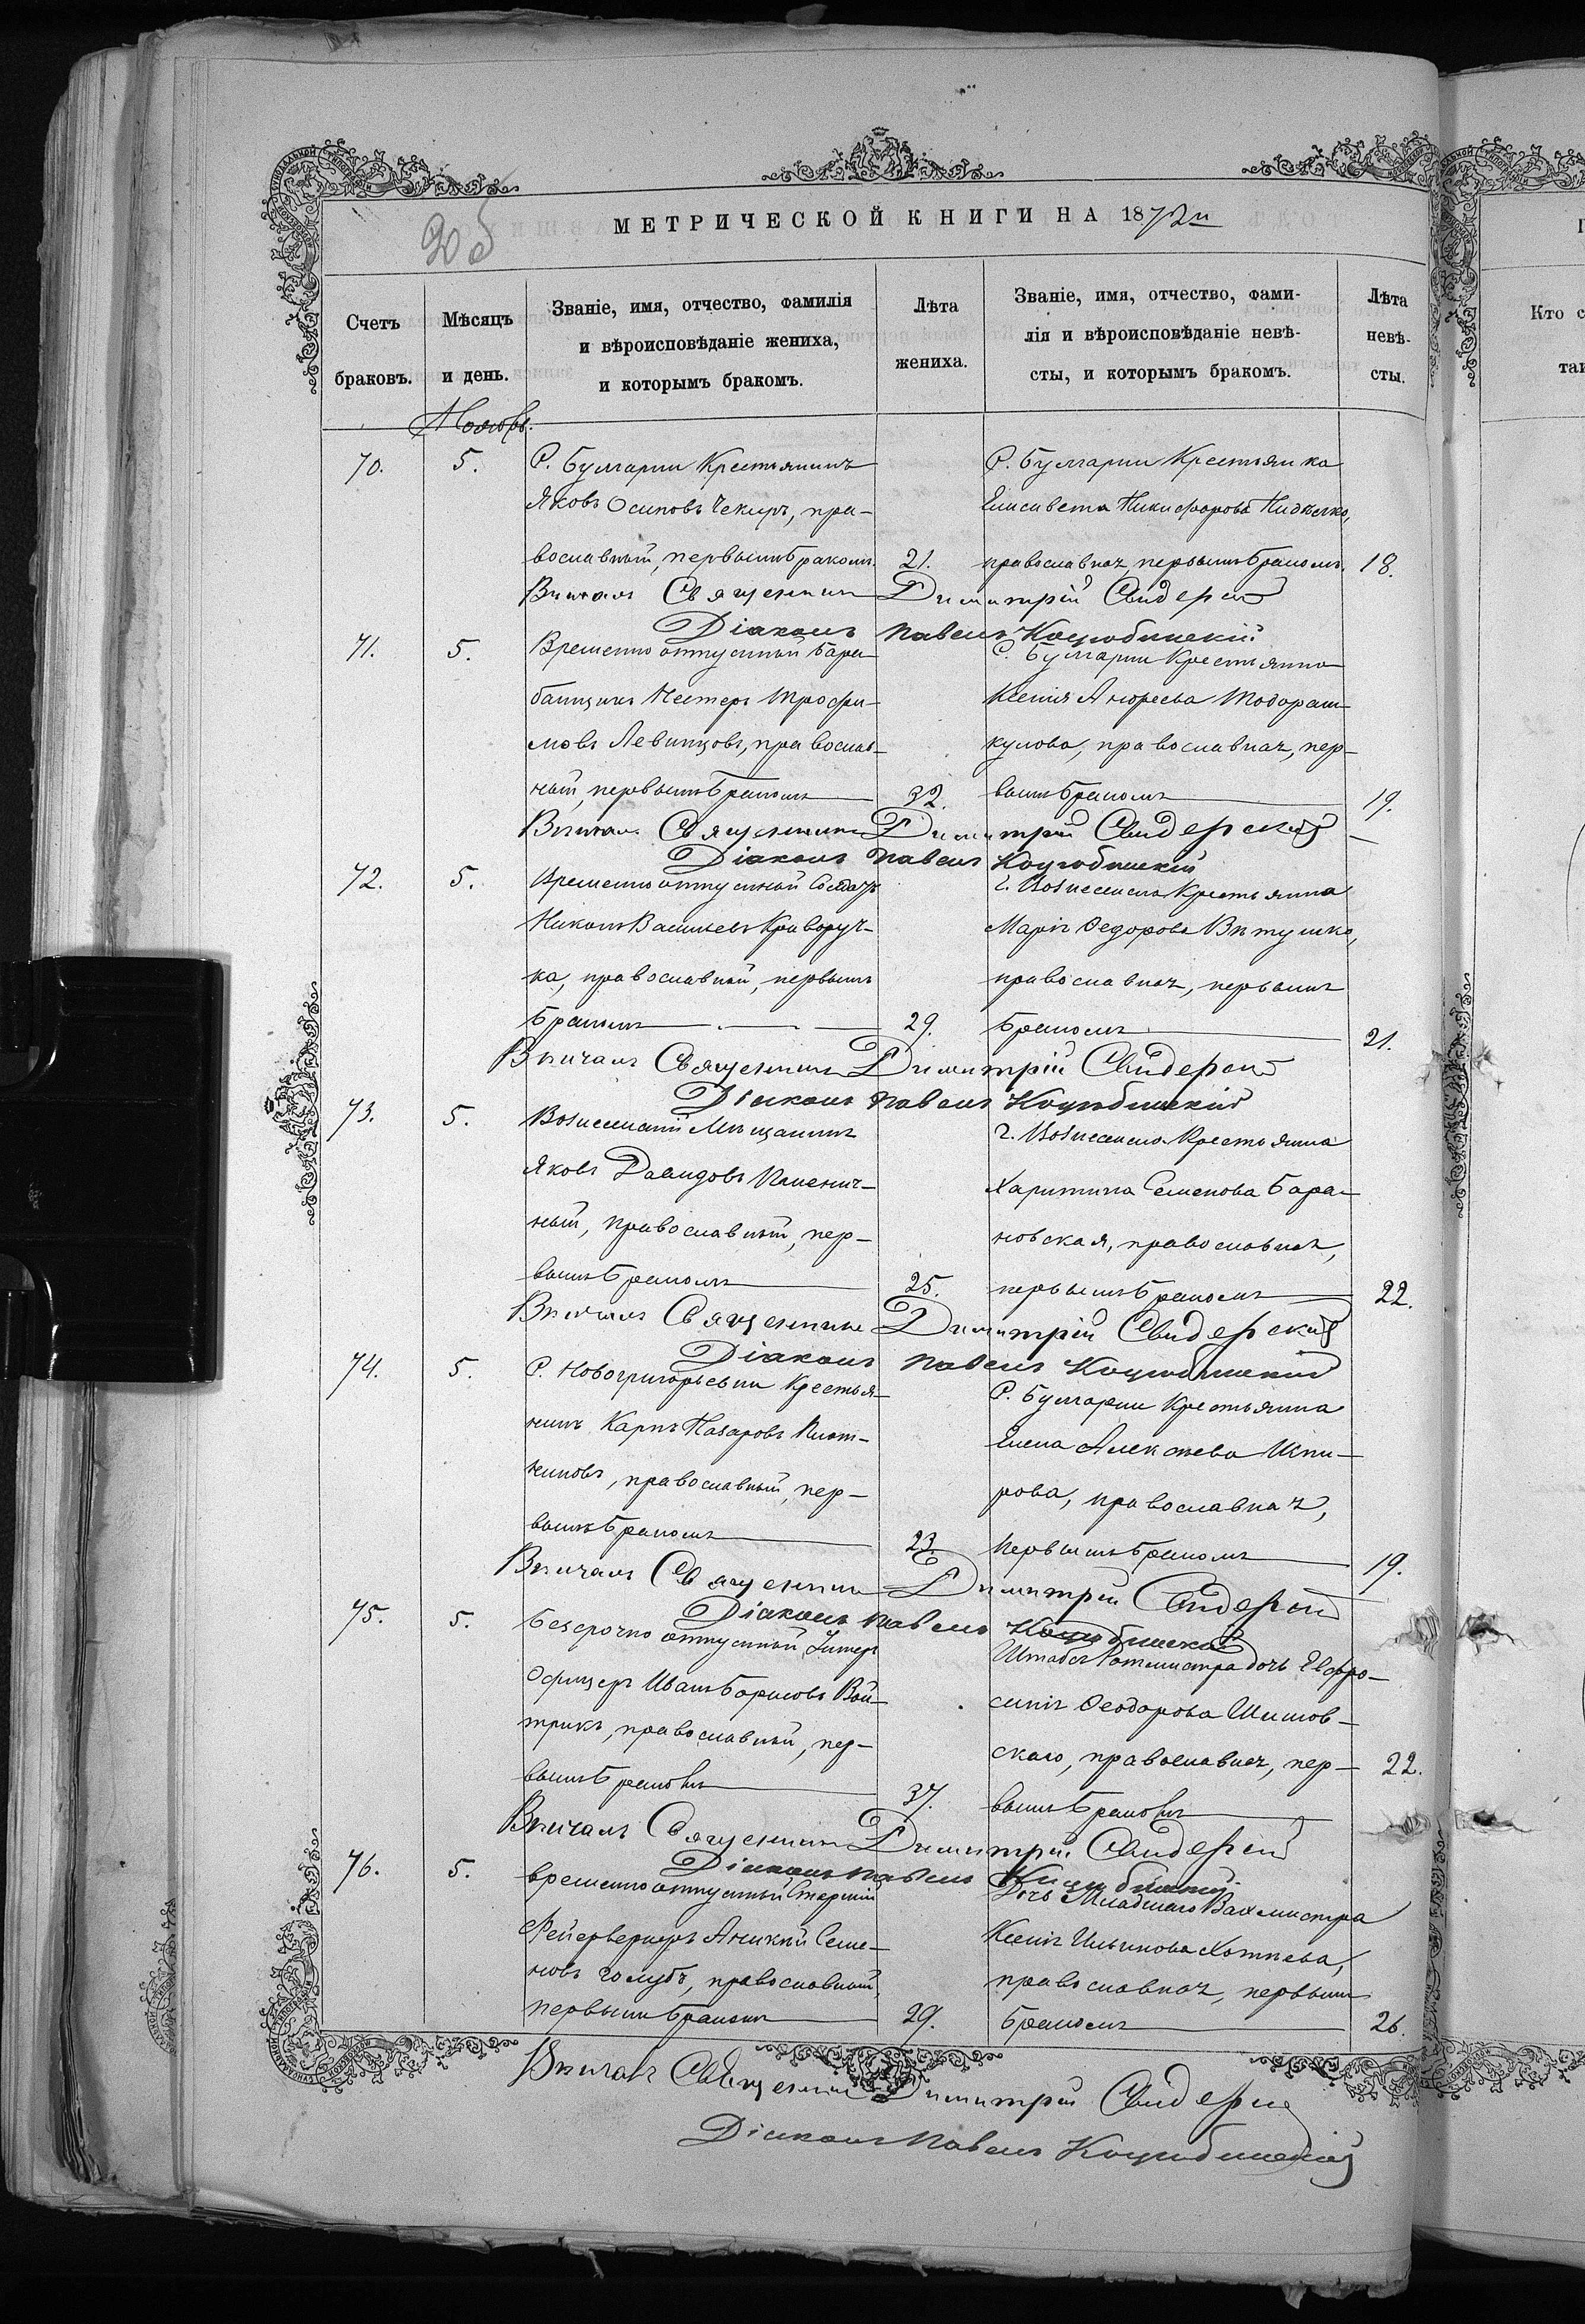 205
МЕТРИЧЕСКОЙ КНИГИ НА 1872й
Счетъ браковъ.
Мѣсяцъ и день.
Званіе, имя, отчество, фамилія
и вѣроисповѣданіе жениха,
и которымъ бракомъ.
Лѣта жениха.
Званіе, имя, отчество, фами-
лія и вѣроисповѣданіе невѣ-
сты, и которымъ бракомъ.
Лѣта невѣ- сты.
Ноябрь.
70. 5.
Р. Булгарки Крестьянинъ
Яковъ Осиповъ Чекиръ, пра-
вославный, первымъ бракомъ. 21.
Р. Булгарки Крестьянка
Елисавета Никифорова
православная, первымъ бракомъ. 18.
Вѣнчалъ Священникъ Димитрій Свидерскій
Діаконъ Павелъ Коцюбинскій
71. 5.
Временно отпускный Бара-
банщикъ Нестеръ Трофи-
мовъ Левинцовъ, православ-
ный, первымъ бракомъ 32.
С. Булгарки Крестьянка
Ксенія Андреева Тодораш-
кулова, православная, пер-
вымъ бракомъ 19.
Вѣнчалъ Священникъ Димитрій Свидерскій
Діаконъ Павелъ Коцюбинскій
72. 5.
Временно отпускный Солдатъ
Никола Васильевъ Криворуч-
ка, православный, первымъ
бракомъ 29.
Г. Вознесенска Крестьянка
Марія Федорова
православная, первымъ
бракомъ 21.
Вѣнчалъ Священникъ Димитрій Свидерскій
Діаконъ Павелъ Коцюбинскій
73. 5.
Вознесенскій Мѣщанинъ
Яковъ Давидовъ Пшенич-
ный, православный, пер-
вымъ бракомъ 25.
г. Вознесенска Крестьянка
Харитина Семенова Бара-
новская, православная,
первымъ бракомъ 22.
Вѣнчалъ Священникъ Димитрій Свидерскій
Діаконъ Павелъ Коцюбинскій
74. 5.
Р. Новогригорьевки Крестья-
нинъ Карпъ Назаровъ Плот-
никовъ, православный, пер-
вымъ бракомъ 23.
Р. Булгарки Крестьянка
Елена Алексѣева
рова, православная,
первымъ бракомъ 19.
Вѣнчалъ Священникъ Димитрій Свидерскій
Діаконъ Павелъ Коцюбинскій
75. 5.
Безсрочно отпускный Унтеръ
Офицеръ Иванъ Борисовъ Вой-
трикъ, православный, пер-
вымъ бракомъ 37.
Штабсъ Ротмистра дочь Евфро-
синія Феодорова Шимов-
скаго, православная, пер- 22.
вымъ бракомъ
Вѣнчалъ Священникъ Димитрій Свидерскій
Діаконъ Павелъ Коцюбинскій
76. 5.
Временно отпускный Старшій
Фейерверкеръ Аникій Семе-
новъ Голубъ, православный,
первымъ бракомъ 29.
Дочь Младшаго Вахмистра
Ксенія Ильинова
православная, первымъ
бракомъ 26.
Вѣнчалъ Священникъ Димитрій Свидерскій
Діаконъ Павелъ Коцюбинскій
Кто с